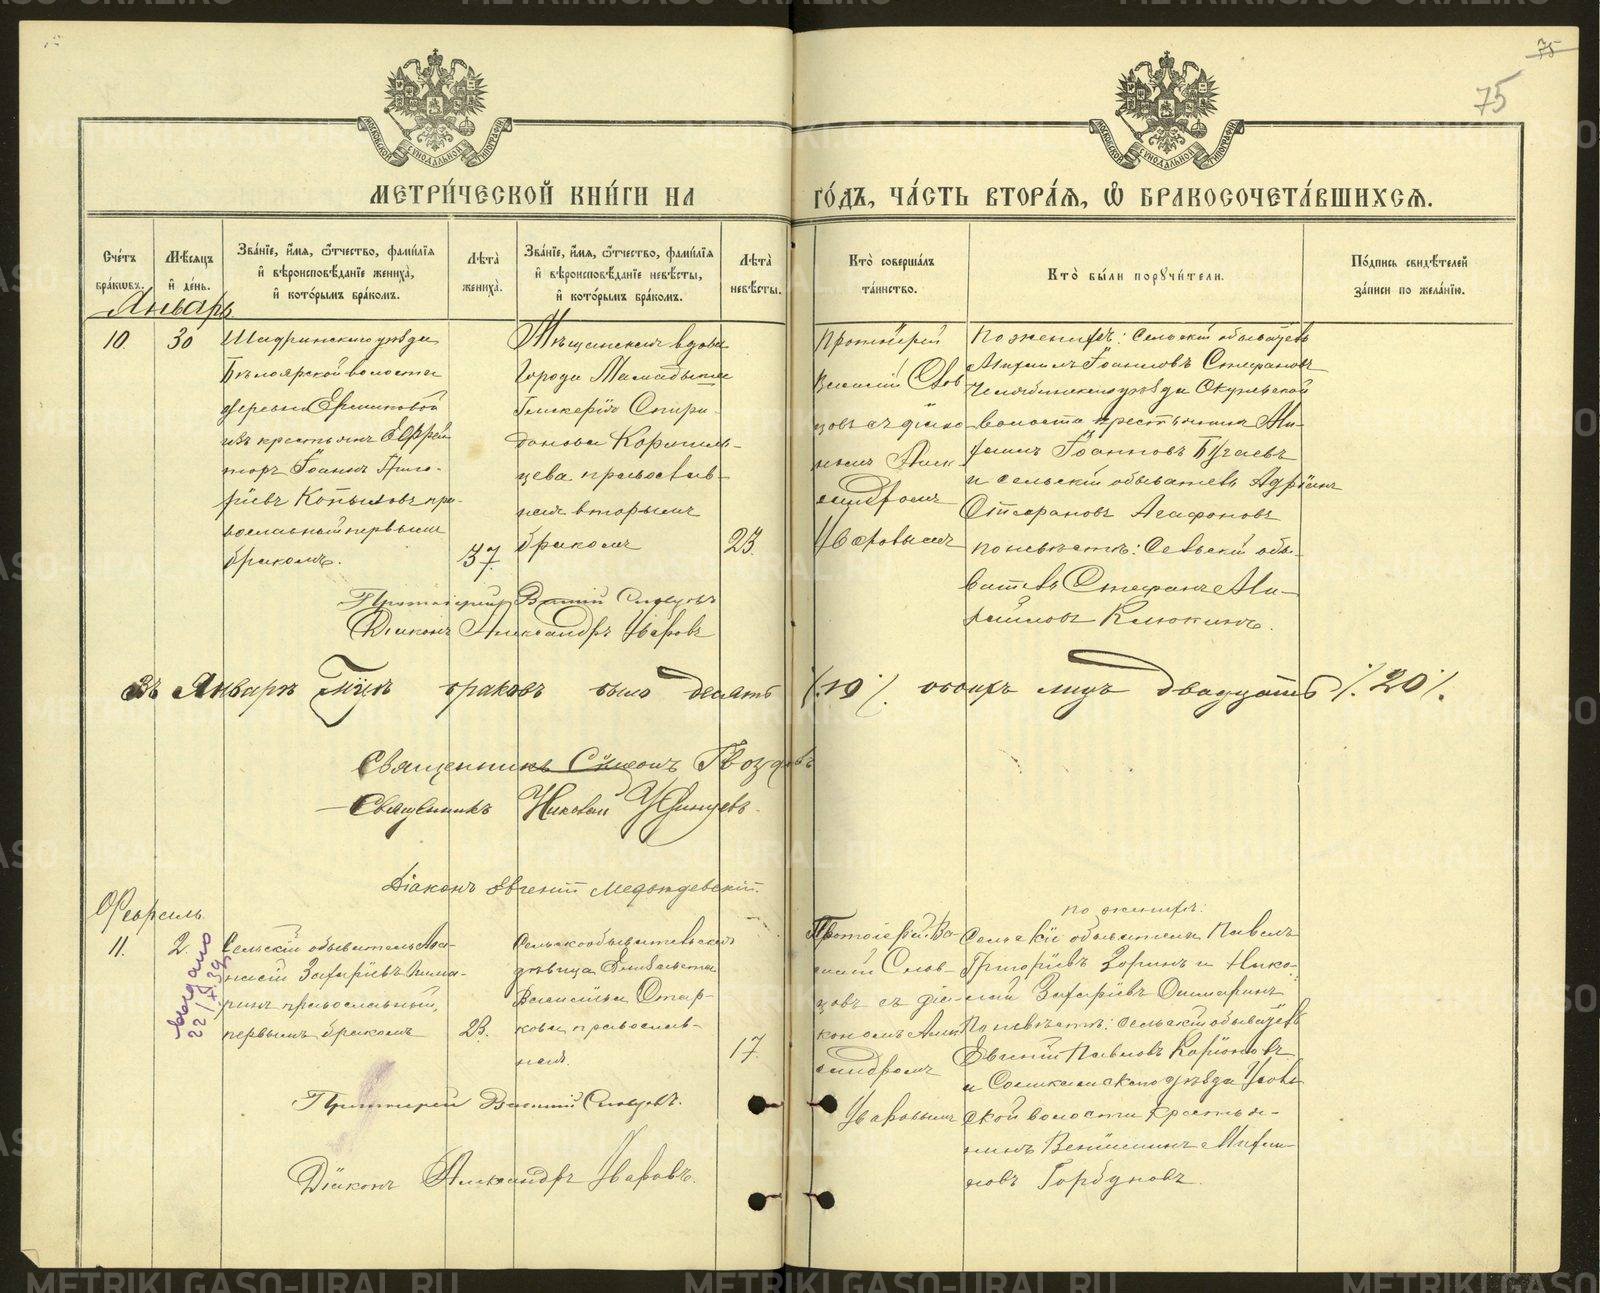 75
75
МЕТРИ́ЧЕСКОЙ КНИ́ГИ НА
ГО́ДЪ, ЧА́СТЬ ВТОРА́Я, Ѡ҆ БРАКОСОЧЕТА́ВШИХСЯ.
Сче́тъ бра́кѡвъ.
Мѣ́сяцъ и҆ де́нь.
Зва́нїе, и҆́мя, ѻ҆́тчество, фами́лїѧ
и҆ вѣроисповѣ́данїе жениха̀,
и҆ кото́рымъ бра́комъ.
Лѣ́та̀ жениха̀.
Зва́нїе, и҆́мя, ѻ҆́тчество, фами́лїѧ
и҆ вѣроисповѣ́данїе невѣ́сты,
и҆ кото́рымъ бра́комъ.
Лѣ́та̀ невѣ́сты.
Кто̀ соверша́лъ
та́инство.
Кто̀ бы́ли порꙋчи́тели.
По́дпись свидѣ́телей
за́писи по жела́нїю.
Январь
10.
30
Шадринскаго уѣзда
Бѣлоярской волости
деревни Ершиковой
изъ крестьянъ Ефрей
торъ Іоаннъ Григо-
ріевъ Копыловъ пра-
вославный первымъ
бракомъ.
37.
Мѣщанская вдова
города Мамадыша
Гликерія Спири-
донова Кормиль-
цева православ-
ная вторымъ
бракомъ
23.
Протоіерей
Василій Слов-
цовъ съ діако-
номъ Алек-
сандромъ
Уваровымъ
По женихѣ: Сельскій обыватель
Михаилъ Іоанновъ Стефановъ
Челябинскаго уѣзда Окуневской
волости крестьянинъ Ми-
хаилъ Іоанновъ Бугаевъ
и сельскій обыватель Адріанъ
Стефановъ Агафоновъ
по невѣстѣ: Сельскій обы-
ватель Стефанъ Ми-
хайловъ Клюкинъ.
Протоіерей Василій Словцовъ
Діаконъ Александръ Уваровъ
Въ Январѣ м͠цѣ браковъ было десять /.10/. обоихъ лицъ двадцать /.20/.
Священникъ Симеонъ Гвоздевъ
Священникъ Николай Удинцевъ
Діаконъ Евгеній Медвѣдевскій
Февраль
11.
2.
выдано
22/X 39
Сельскій обыватель Аѳа-
насій Захаріевъ Ошма-
ринъ православный,
первымъ бракомъ
23.
Сельскообывательская
дѣвица Елизавета
Васильева Стар-
кова православ-
ная.
17.
Протоіерей Ва-
силій Слов-
цовъ съ діа-
кономъ Алек
сандромъ
Уваровымъ
по женихѣ:
Сельскіе обыватели Павелъ
Григорьевъ Зоринъ и Нико-
лай Захаріевъ Ошмаринъ
По невѣстѣ: сельскій обыватель
Евгеній Павловъ Каріоновъ
и Соликамскаго уѣзда Усоль
ской волости крестья-
нинъ Веніаминъ Михаи-
ловъ Горбуновъ.
Протоіерей Василій Словцовъ.
Діаконъ Александръ Уваровъ.